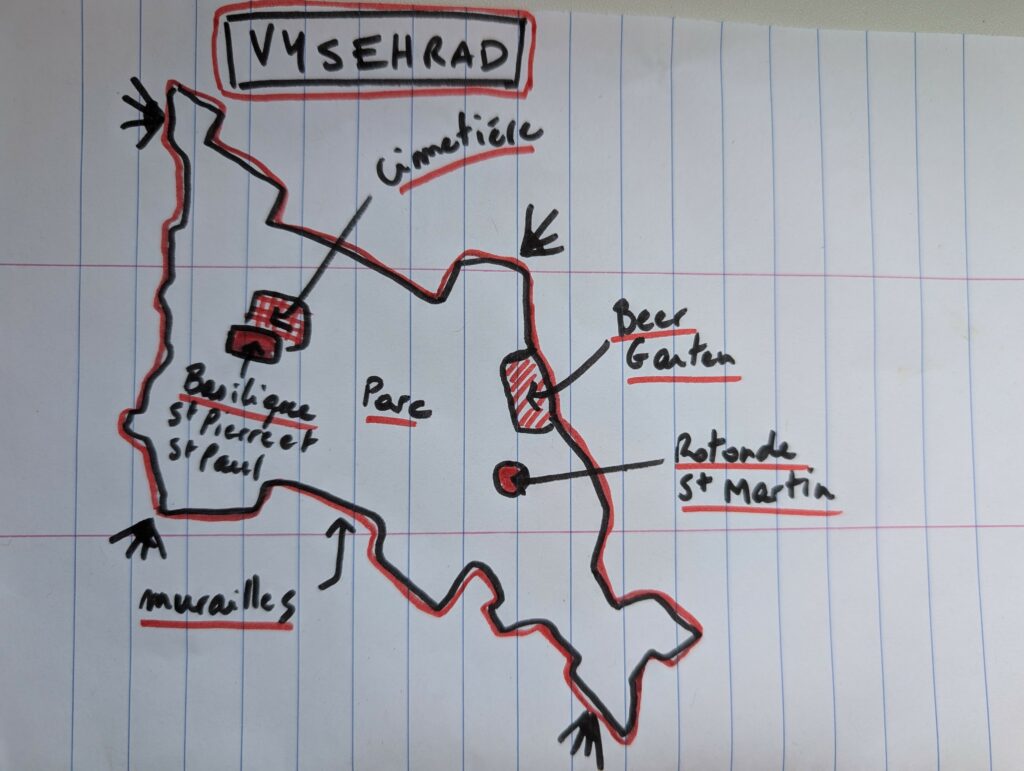 VYSEHRAD
Cimetière
Beer
Garten
Basilique
St Pierre et
St Paul
Parc
Rotonde
St Martin
murailles